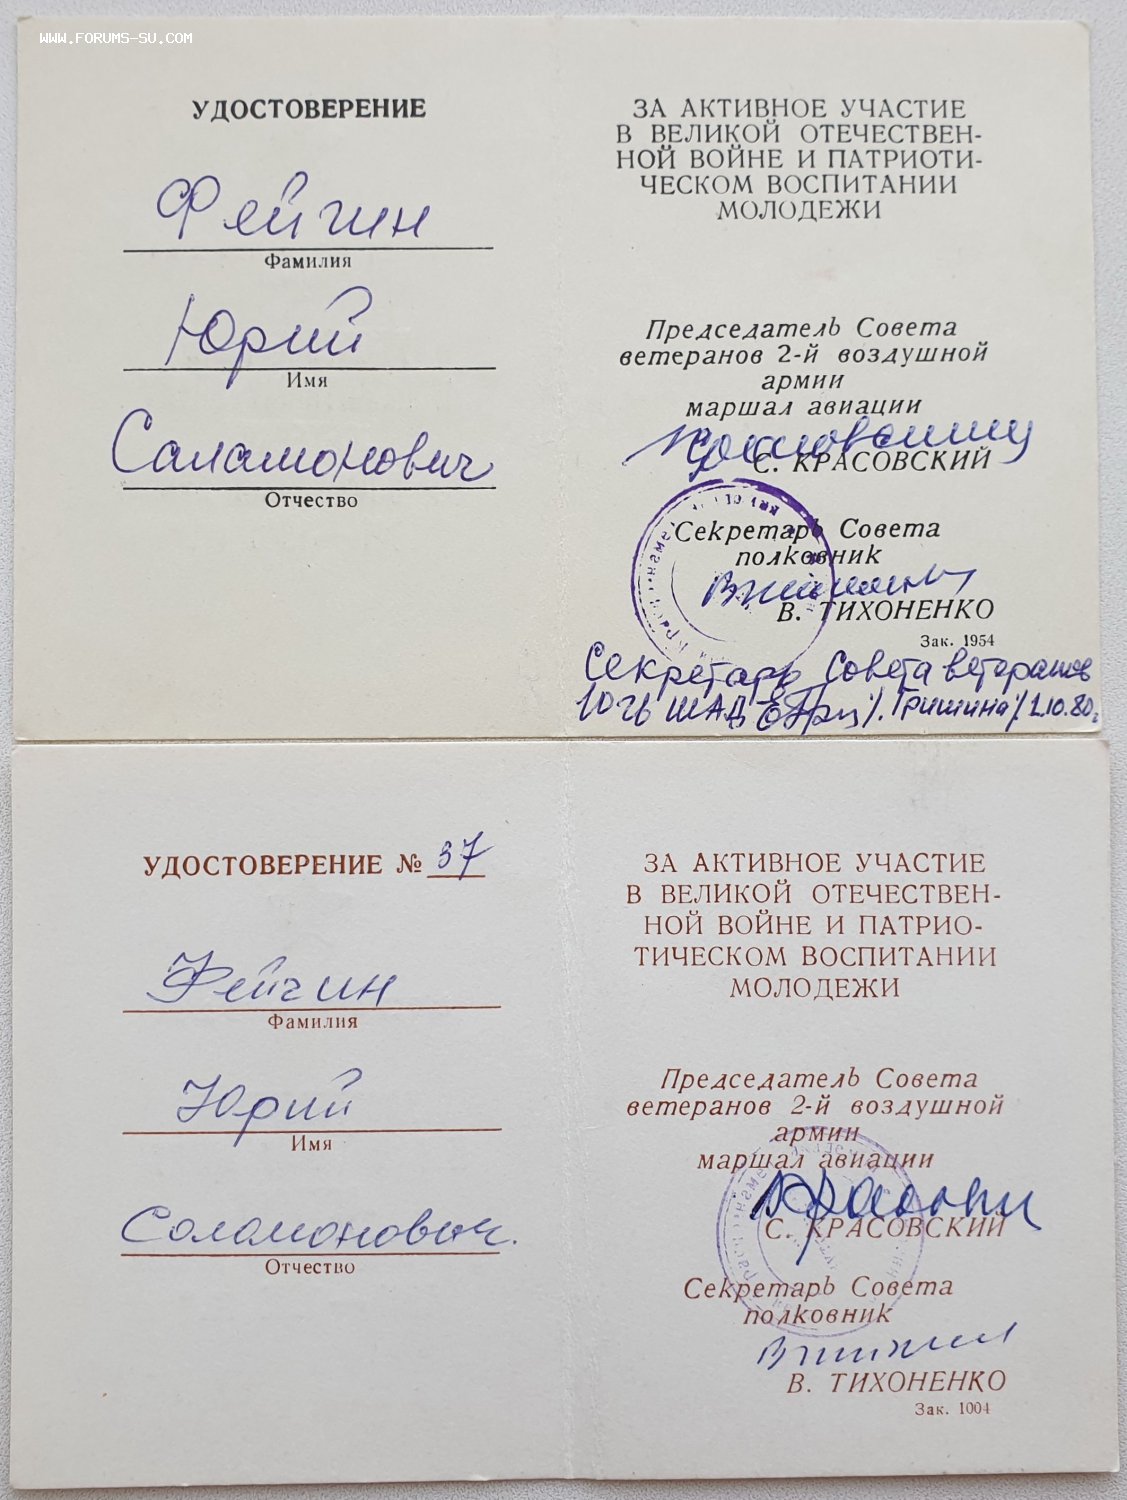 WWW.FORUMS-SU.COM
УДОСТОВЕРЕНИЕ
Фейгин
Фамилия
Юрий
Имя
Саламонович
Отчество
ЗА АКТИВНОЕ УЧАСТИЕ
В ВЕЛИКОЙ ОТЕЧЕСТВЕН-
НОЙ ВОЙНЕ И ПАТРИОТИ-
ЧЕСКОМ ВОСПИТАНИИ
МОЛОДЕЖИ
Председатель Совета
ветеранов 2-й воздушной
армии
маршал авиации
С. КРАСОВСКИЙ
Секретарь Совета
полковник
В. ТИХОНЕНКО
Зак. 1954
Секретарь Совета ветеранов
10 гв ШАД /Гришина/ 1.10.80г
УДОСТОВЕРЕНИЕ № 37
Фейгин
Фамилия
Юрий
Имя
Соломонович.
Отчество
ЗА АКТИВНОЕ УЧАСТИЕ
В ВЕЛИКОЙ ОТЕЧЕСТВЕН-
НОЙ ВОЙНЕ И ПАТРИО-
ТИЧЕСКОМ ВОСПИТАНИИ
МОЛОДЕЖИ
Председатель Совета
ветеранов 2-й воздушной
армии
маршал авиации
С. КРАСОВСКИЙ
Секретарь Совета
полковник
В. ТИХОНЕНКО
Зак. 1004